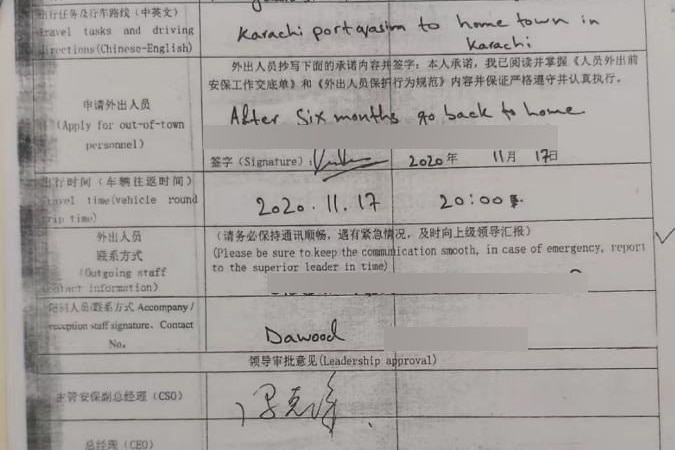 出行任务及行车路线（中英文）
ravel tasks and driving
directions(Chinese-English)
Karachi port to home town in
Karachi
外出人员抄写下面的承诺内容并签字：本人承诺，我已阅读并掌握《人员外出前
安保工作交底单》和《外出人员保护行为规范》内容并保证严格遵守并认真执行。
申请外出人员
(Apply for out-of-town
personnel)
After Six months go back to home
签字 (Signature):
2020年 11月 17日
出行时间（车辆往返时间）
ravel time(vehicle round
rip time)
2020.11.17 20:00
外出人员
联系方式
(Outgoing staff
ontact information)
（请务必保持通讯顺畅，遇有紧急情况，及时向上级领导汇报）
(Please be sure to keep the communication smooth, in case of emergency, report
to the superior leader in time)
陪同人员/联系方式 Accompany /
reception staff signature、Contact
No。
Dawood
领导审批意见(Leadership approval)
主管安保副总经理 (CSO)
总经理 (CEO)